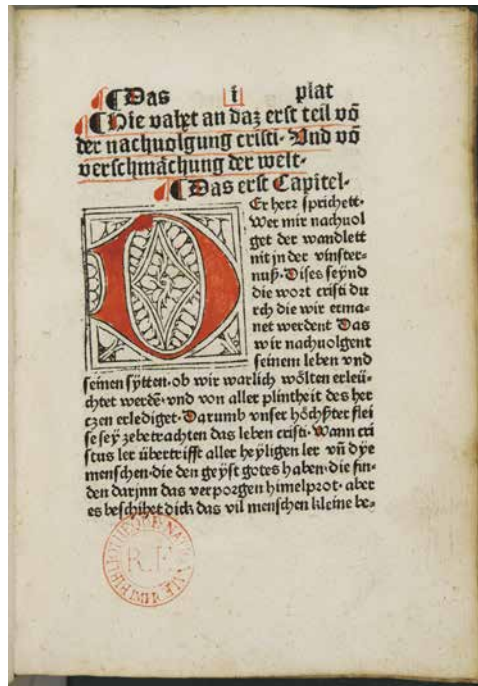 Das i plat
Hie vahet an daz erst teil võ
der nachuolgung cristi· Vnd võ
verschmåchung der welt·
Das erst Capitel·
D Er herr sprichett·
Wer mir nachuol
get der wandlett
nit jn der vinster-
nuß· Dises seynd
die wort cristi du
rch die wir erma-
net werdent Das
wir nachuolgent
seinem leben vnd
seinen sÿtten· ob wir warlich wôlten erleü-
chtet werdẽ· vnd von aller plintheit des her
czen erlediget· Darumb vnser hôchster flei
se seÿ zebetrachten das leben cristi· Wann cri
stus ler übertrifft aller heÿligen ler vñ dÿe
menschen· die den geÿst gotes haben· die fin-
den darjnn das verporgen himelprot· aber
es beschihet dick das vil menschen kleine be-
BIBLIOTHEQUE NATIONALE
R.F.